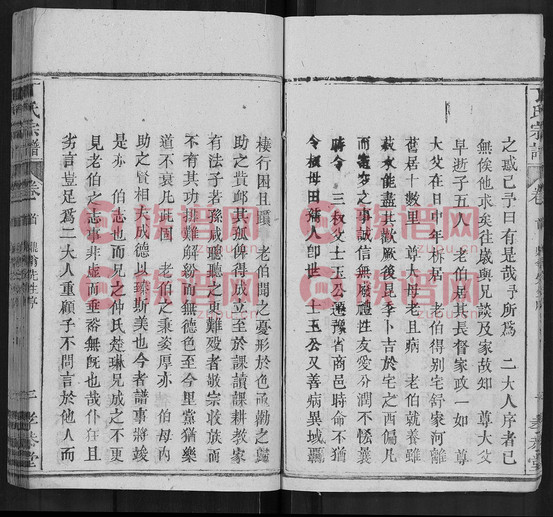 之惑己予曰有是哉予所為 二大人序者已
無俟他求矣往歲與兄談及家故知 尊大父
早逝子五人 老伯最其長督家政一如 尊
大父在日中年析居 老伯得別宅舒家河離
舊居十數里 尊大母老且病 老伯就養雖
菽水能盡其歡厥後昆季卜吉於宅之西偏凡
而窀穸之事誠信無廢禮性友愛分潤不慭囊
時令 三叔父士玉公運豫省商邑時命不猶
令叔母田孺人即世 士玉公又善病異域羈
棲行困且躓 老伯聞之憂形於色亟勸之歸
助之貲鄖其孤俾得成立至於課讀課耕教家
有法子若孫咸聽聽之更難歿者敬宗收族而
不有其功排難解紛而無德色至今里黨猶樂
道不衰凡此固 老伯之秉姿厚亦 伯母內
助之賢相夫成德以臻斯美也今者譜事將竣
是亦 老伯志也而兄之仲氏楚琳兄城之不更
見 老伯志事非虛而垂裕無既也哉若仍任
劣言豈足為 二大人重顧子不問言於他人而
氏宗譜
卷首
三 孝恭堂
族谱网